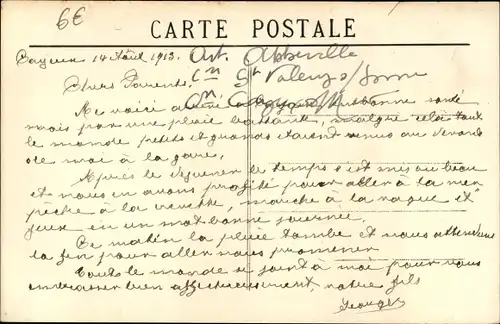 6€
CARTE POSTALE
Cayeux 14 Août 1913. Art. Abbeville
Chers Parents. Cn St Valery s/Somme
Me voici arrivé à bonne santé
mais par une pluie battante, malgré cela tout
le monde petits et grands étaient venus au devant
de moi à la gare.
Après le déjeuner le temps s'est mis au beau
et nous en avons profité pour aller à la mer
pêche à la crevette, marche à la vague et
jeux en un mot bonne journée.
Ce matin la pluie tombe et nous attendons
la fin pour aller nous promener
Tout le monde se joint à moi pour vous
embrasser bien affectueusement, votre fils
Georges